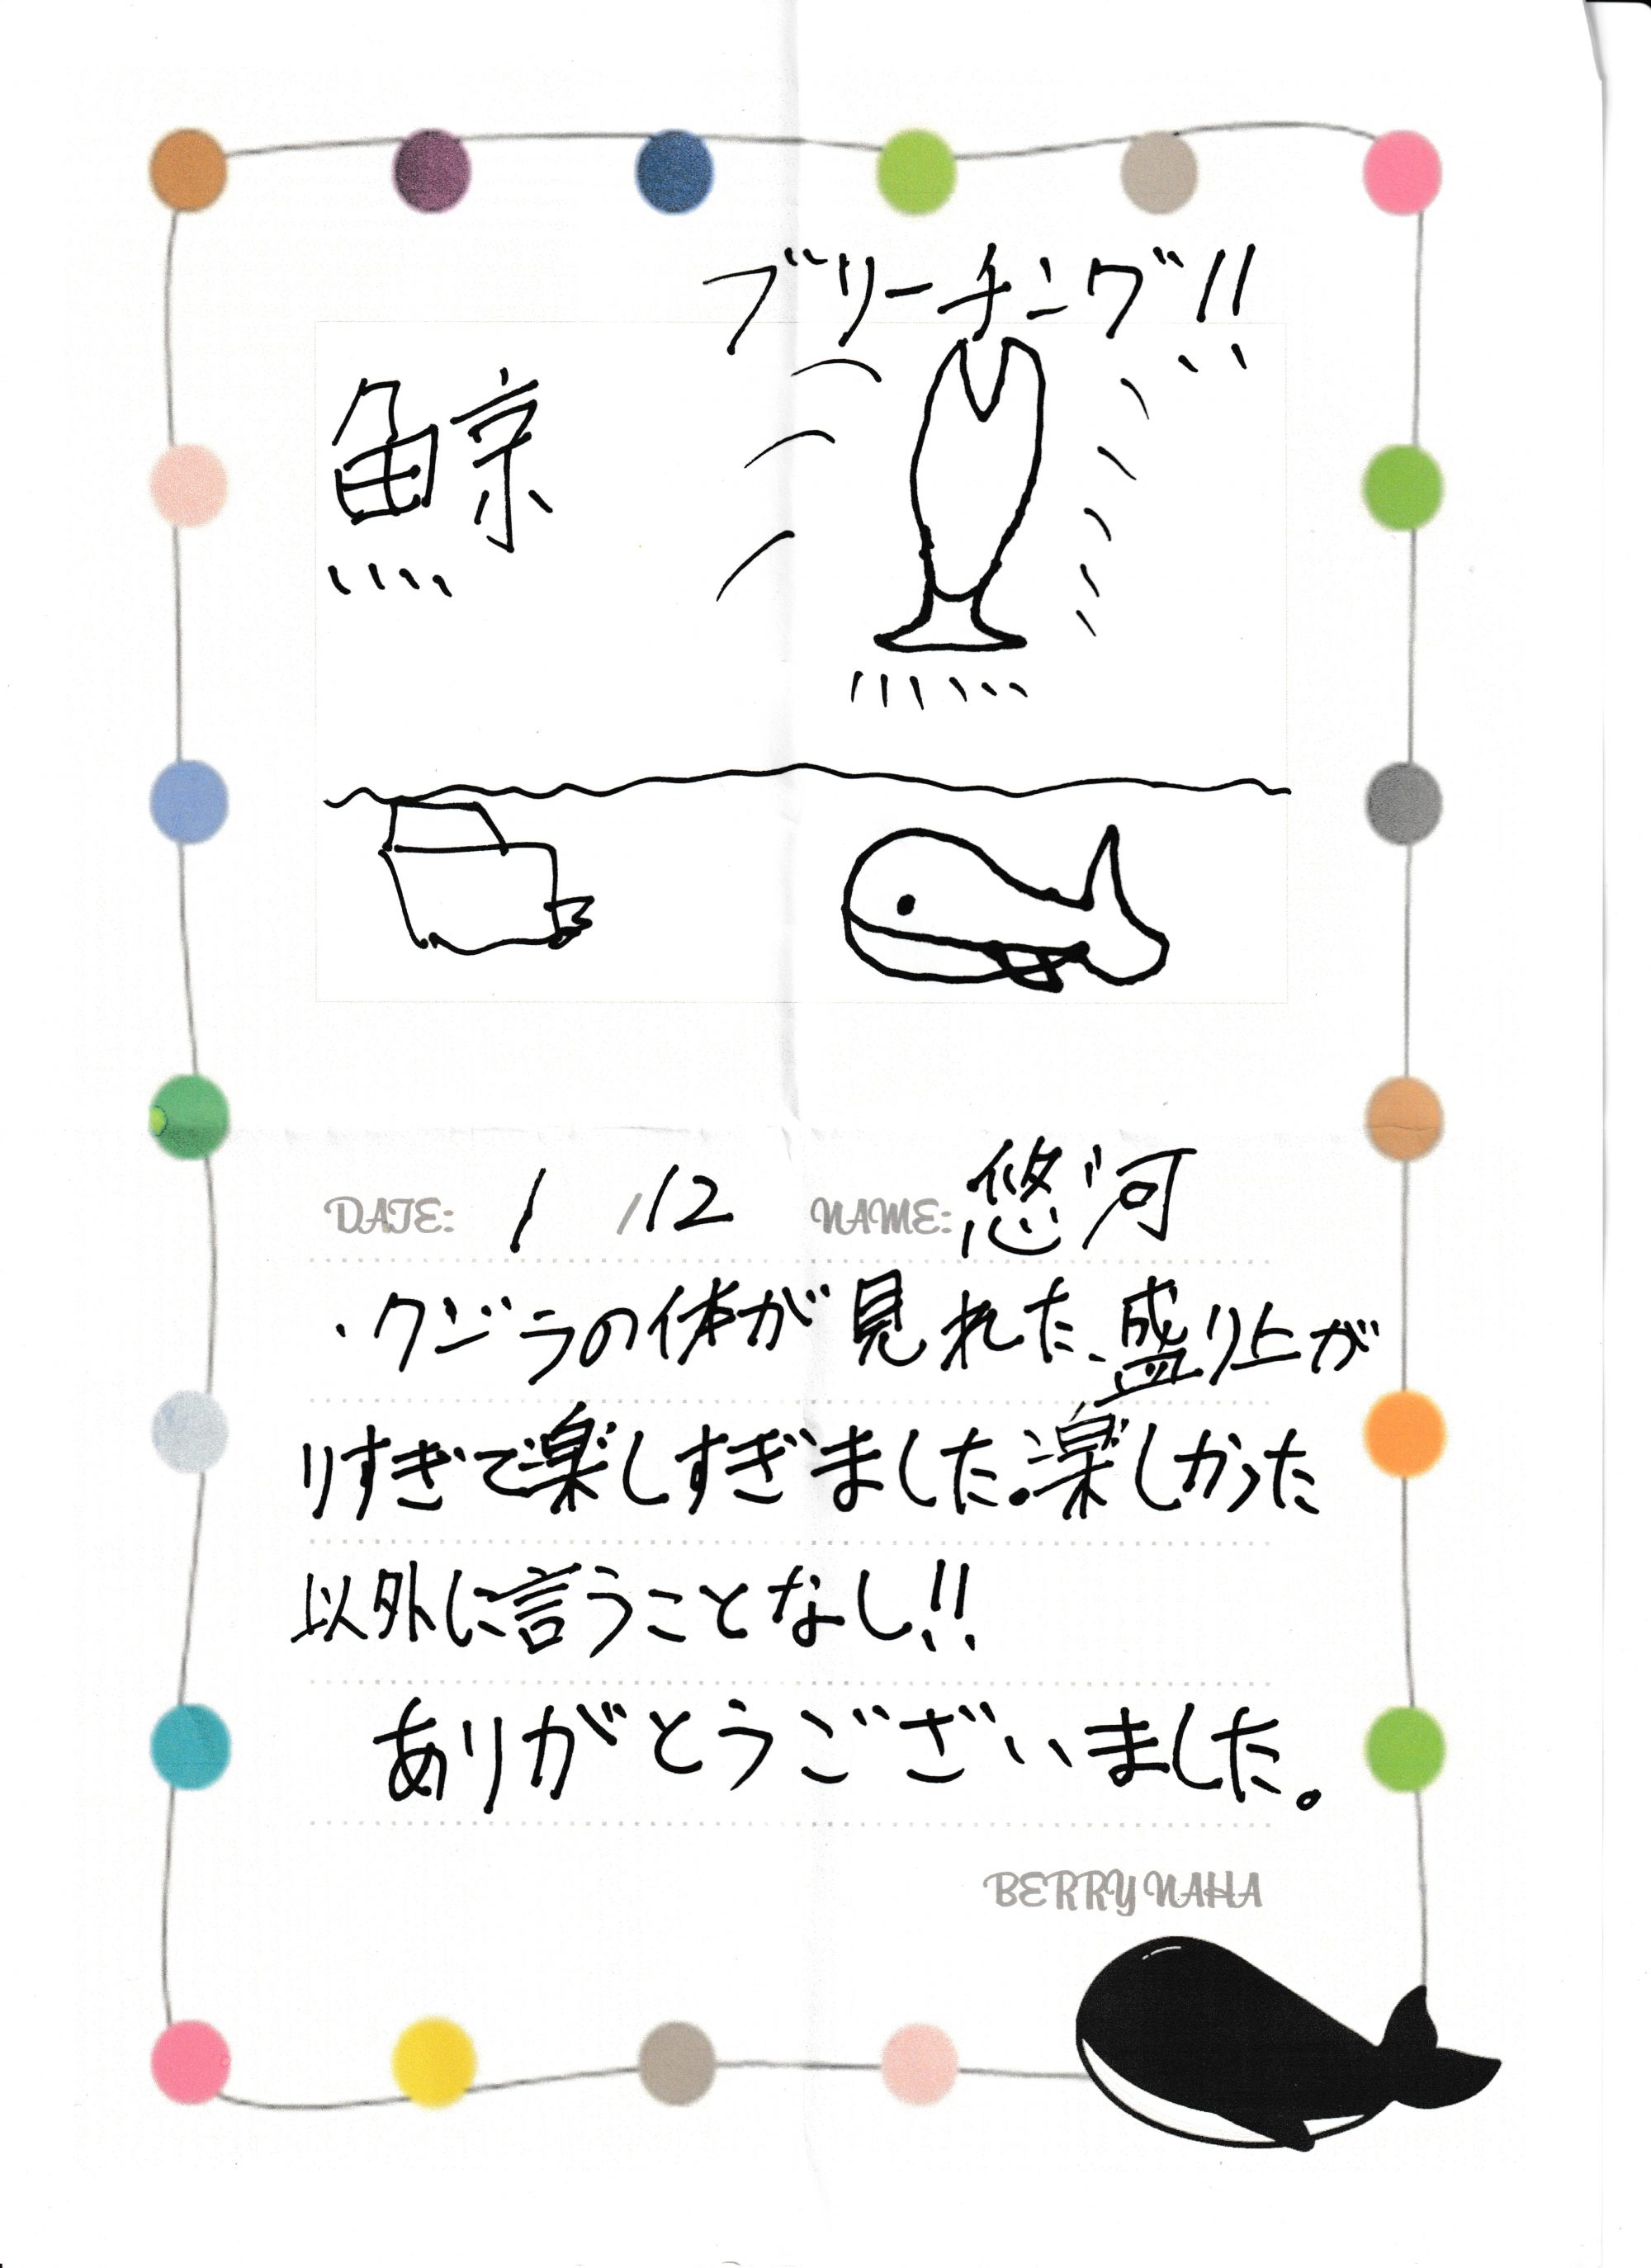 ブリーチング!!
鯨
DATE: 1 /12 NAME: 悠河
・クジラの体が見れた、盛り上が
りすぎで楽しすぎました。楽しかった
以外に言うことなし!!
ありがとうございました。
BERRY NAHA